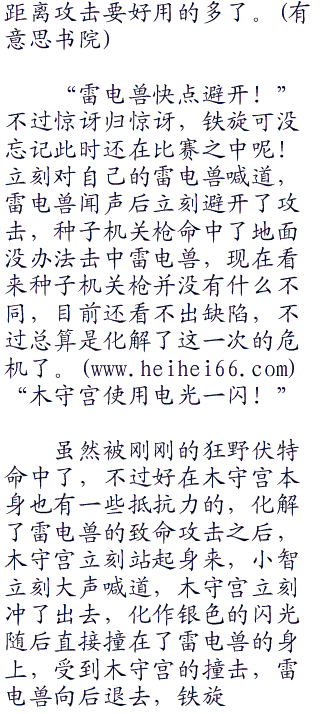 距离攻击要好用的多了。(有
意思书院)
“雷电兽快点避开！”
不过惊讶归惊讶，铁旋可没
忘记此时还在比赛之中呢！
立刻对自己的雷电兽喊道，
雷电兽闻声后立刻避开了攻
击，种子机关枪命中了地面
没办法击中雷电兽，现在看
来种子机关枪并没有什么不
同，目前还看不出缺陷，不
过总算是化解了这一次的危
机了。(www.heihei66.com)
“木守宫使用电光一闪！”
虽然被刚刚的狂野伏特
命中了，不过好在木守宫本
身也有一些抵抗力的，化解
了雷电兽的致命攻击之后，
木守宫立刻站起身来，小智
立刻大声喊道，木守宫立刻
冲了出去，化作银色的闪光
随后直接撞在了雷电兽的身
上，受到木守宫的撞击，雷
电兽向后退去，铁旋